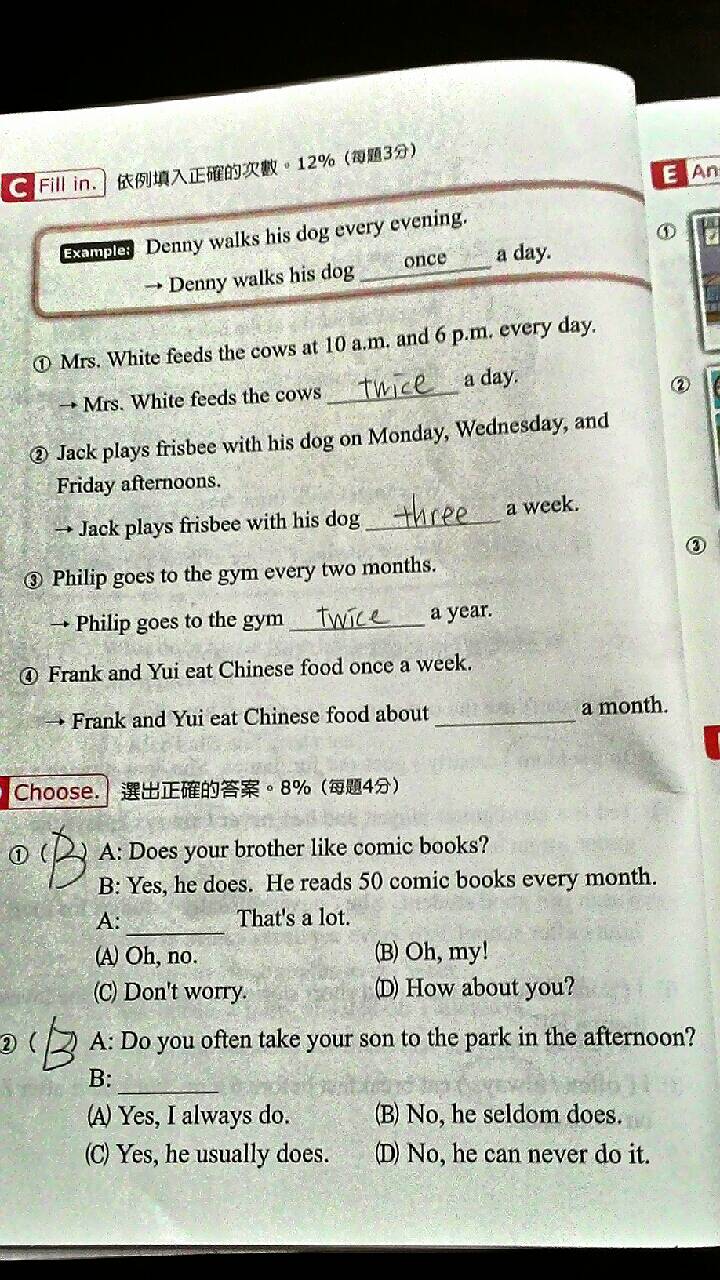 C Fill in. 依例填入正確的次數。12% (每題3分)
Example: Denny walks his dog every evening.
→ Denny walks his dog once a day.
① Mrs. White feeds the cows at 10 a.m. and 6 p.m. every day.
→ Mrs. White feeds the cows twice a day.
② Jack plays frisbee with his dog on Monday, Wednesday, and
Friday afternoons.
→ Jack plays frisbee with his dog three a week.
③ Philip goes to the gym every two months.
→ Philip goes to the gym twice a year.
④ Frank and Yui eat Chinese food once a week.
→ Frank and Yui eat Chinese food about ________ a month.
Choose. 選出正確的答案。8% (每題4分)
① (B) A: Does your brother like comic books?
B: Yes, he does. He reads 50 comic books every month.
A: ________ That's a lot.
(A) Oh, no. (B) Oh, my!
(C) Don't worry. (D) How about you?
② (B) A: Do you often take your son to the park in the afternoon?
B: ________
(A) Yes, I always do. (B) No, he seldom does.
(C) Yes, he usually does. (D) No, he can never do it.
E An
①
②
③